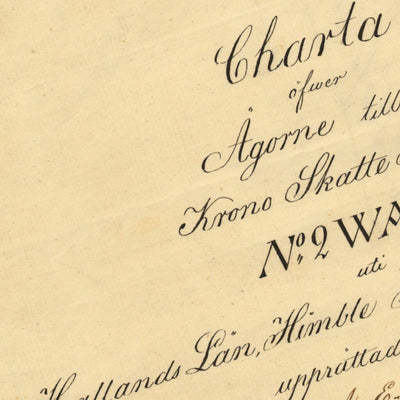 Charta
öfwer
Ågorne till
Krono Skatte
No. 2 WA
uti
Hallands Län, Himble
upprättad